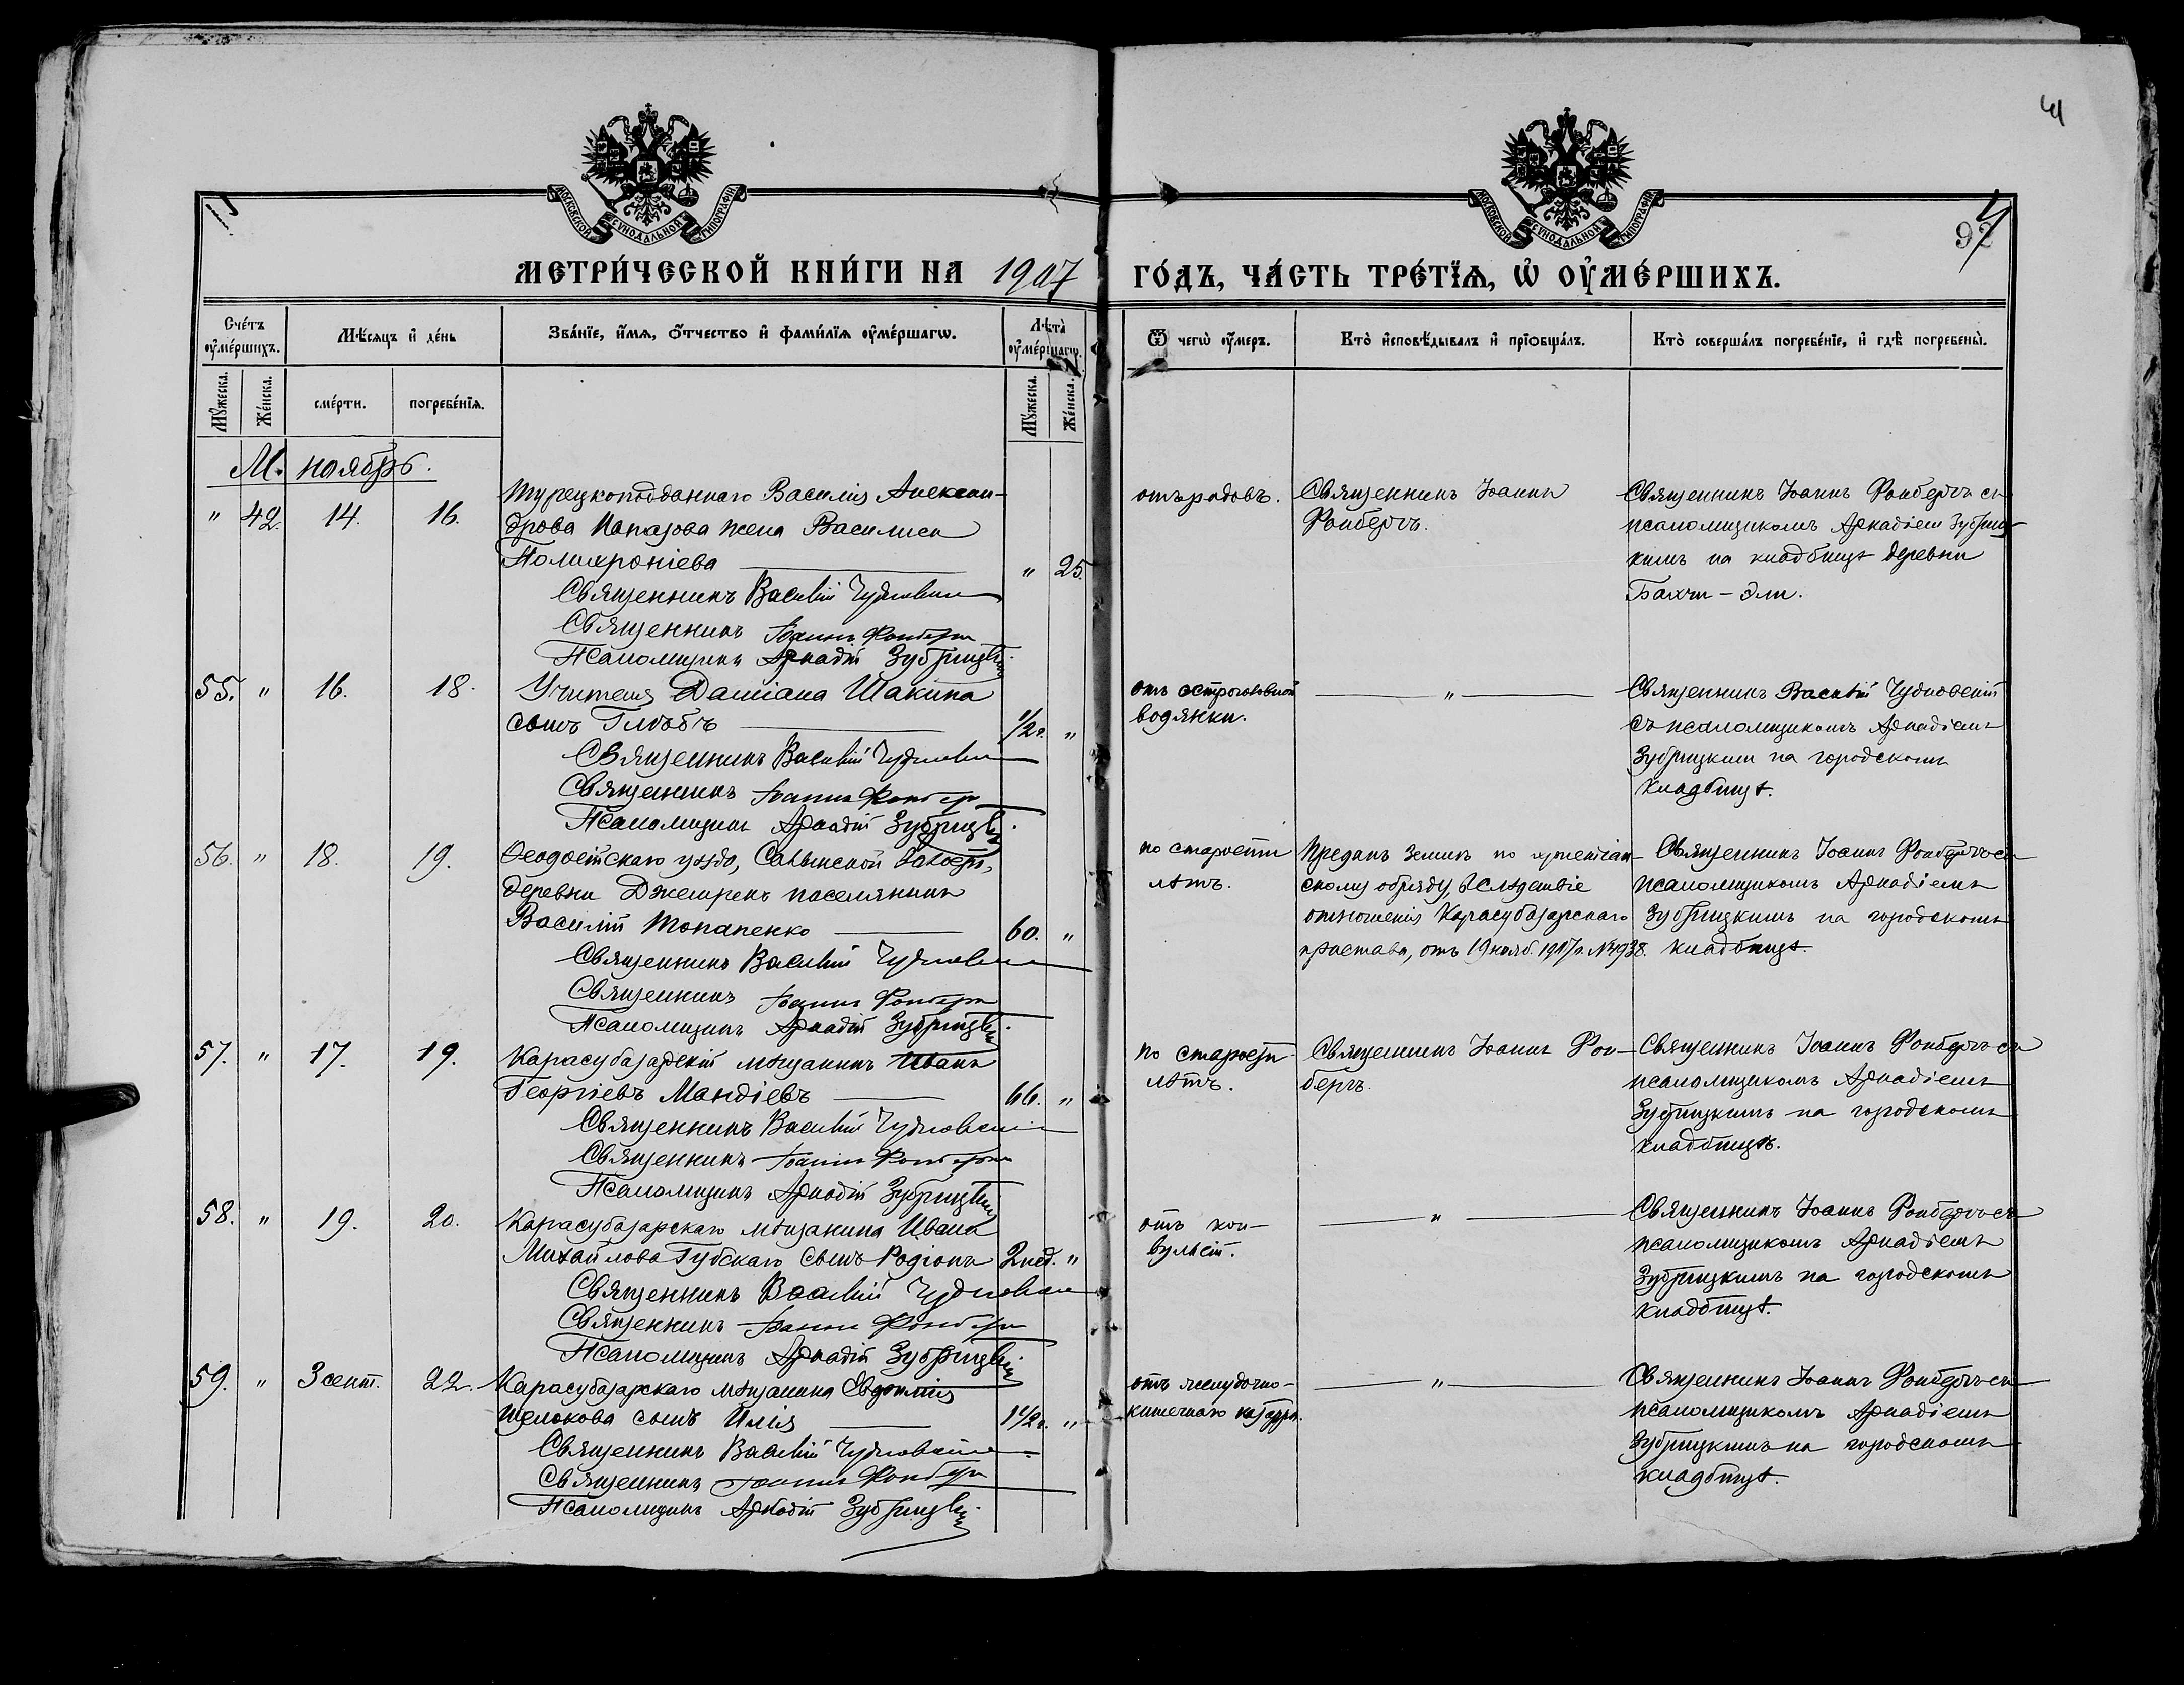 41
92
МОСКОВСКОЙ СѴНОДАЛЬНОЙ ТИПОГРАФІИ
МОСКОВСКОЙ СѴНОДАЛЬНОЙ ТИПОГРАФІИ
МЕТРИ́ЧЕСКОЙ КНИ́ГИ НА 1907 ГО́ДЪ, ЧА́СТЬ ТРЕ́ТІѦ, Ѡ ОУ҆МЕ́РШИХЪ.
Сче́тъ оу҆ме́ршихъ.
Мѣ́сяцъ и҆ де́нь
Зва́нїе, и҆́мѧ, ѻ҆́тчество и҆ фами́лїѧ оу҆ме́ршагѡ.
Лѣ́та оу҆ме́ршагѡ.
Ѿ чегѡ̀ оу҆́меръ.
Кто̀ и҆сповѣ́дывалъ и҆ прїѡбща́лъ.
Кто̀ соверша́лъ погребе́нїе, и҆ гдѣ̀ погребены̀.
Мꙋ́жеска.
Же́нска.
сме́рти.
погребе́нїѧ.
Мꙋ́жеска.
Же́нска.
М. ноябрь.
" 42. 14. 16.
Турецкоподданнаго Василія Алексан-
дрова Папазова жена Василиса
Полихроніева " 25.
Священникъ Василій Чудновскій
Священникъ Іоаннъ Фонбергъ
Псаломщикъ Аркадій Зубрицкій
отъ родовъ.
Священникъ Іоаннъ
Фонбергъ.
Священникъ Іоаннъ Фонбергъ съ
псаломщикомъ Аркадіем Зубриц-
кимъ на кладбищѣ деревни
Бахчи-Эли.
55. " 16. 18.
Учителя Даміана Шакина
сынъ Глѣбъ 1/2 г. "
Священникъ Василій Чудновскій
Священникъ Іоаннъ Фонбергъ
Псаломщикъ Аркадій Зубрицкій
отъ острой головной
водянки.
"
Священникъ Василій Чудновскій
съ псаломщикомъ Аркадіемъ
Зубрицким на городскомъ
кладбищѣ.
56. " 18. 19.
Ѳеодосійскаго уѣзда,
деревни Джемрекъ поселянинъ
Василій Топаленко 60. "
Священникъ Василій Чудновскій
Священникъ Іоаннъ Фонбергъ
Псаломщикъ Аркадій Зубрицкій
по старости
лѣтъ.
Преданъ землѣ по христіан-
скому обряду, вслѣдствіе
отношенія Карасубазарскаго
пристава, отъ 19 нояб. 1907 г. № 1938.
Священникъ Іоаннъ Фонбергъ съ
псаломщикомъ Аркадіемъ
Зубрицкимъ на городскомъ
кладбищѣ.
57. " 17. 19.
Карасубазарскій мѣщанинъ Иванъ
Георгіевъ Мандіевъ 66. "
Священникъ Василій Чудновскій
Священникъ Іоаннъ Фонбергъ
Псаломщикъ Аркадій Зубрицкій
по старости
лѣтъ.
Священникъ Іоаннъ Фон-
бергъ.
Священникъ Іоаннъ Фонбергъ съ
псаломщикомъ Аркадіемъ
Зубрицкимъ на городскомъ
кладбищѣ.
58. " 19. 20.
Карасубазарскаго мѣщанина Ивана
Михайлова Губскаго сынъ Родіонъ 2 нед. "
Священникъ Василій Чудновскій
Священникъ Іоаннъ Фонбергъ
Псаломщикъ Аркадій Зубрицкій
отъ кон-
вульсій.
"
Священникъ Іоаннъ Фонбергъ съ
псаломщикомъ Аркадіемъ
Зубрицкимъ на городскомъ
кладбищѣ.
59. " 3 сент. 22.
Карасубазарскаго мѣщанина Евдокима
Щелокова сынъ Илія 1 1/2 г. "
Священникъ Василій Чудновскій
Священникъ Іоаннъ Фонбергъ
Псаломщикъ Аркадій Зубрицкій
отъ желудочно-
кишечнаго катарра.
"
Священникъ Іоаннъ Фонбергъ съ
псаломщикомъ Аркадіемъ
Зубрицкимъ на городскомъ
кладбищѣ.